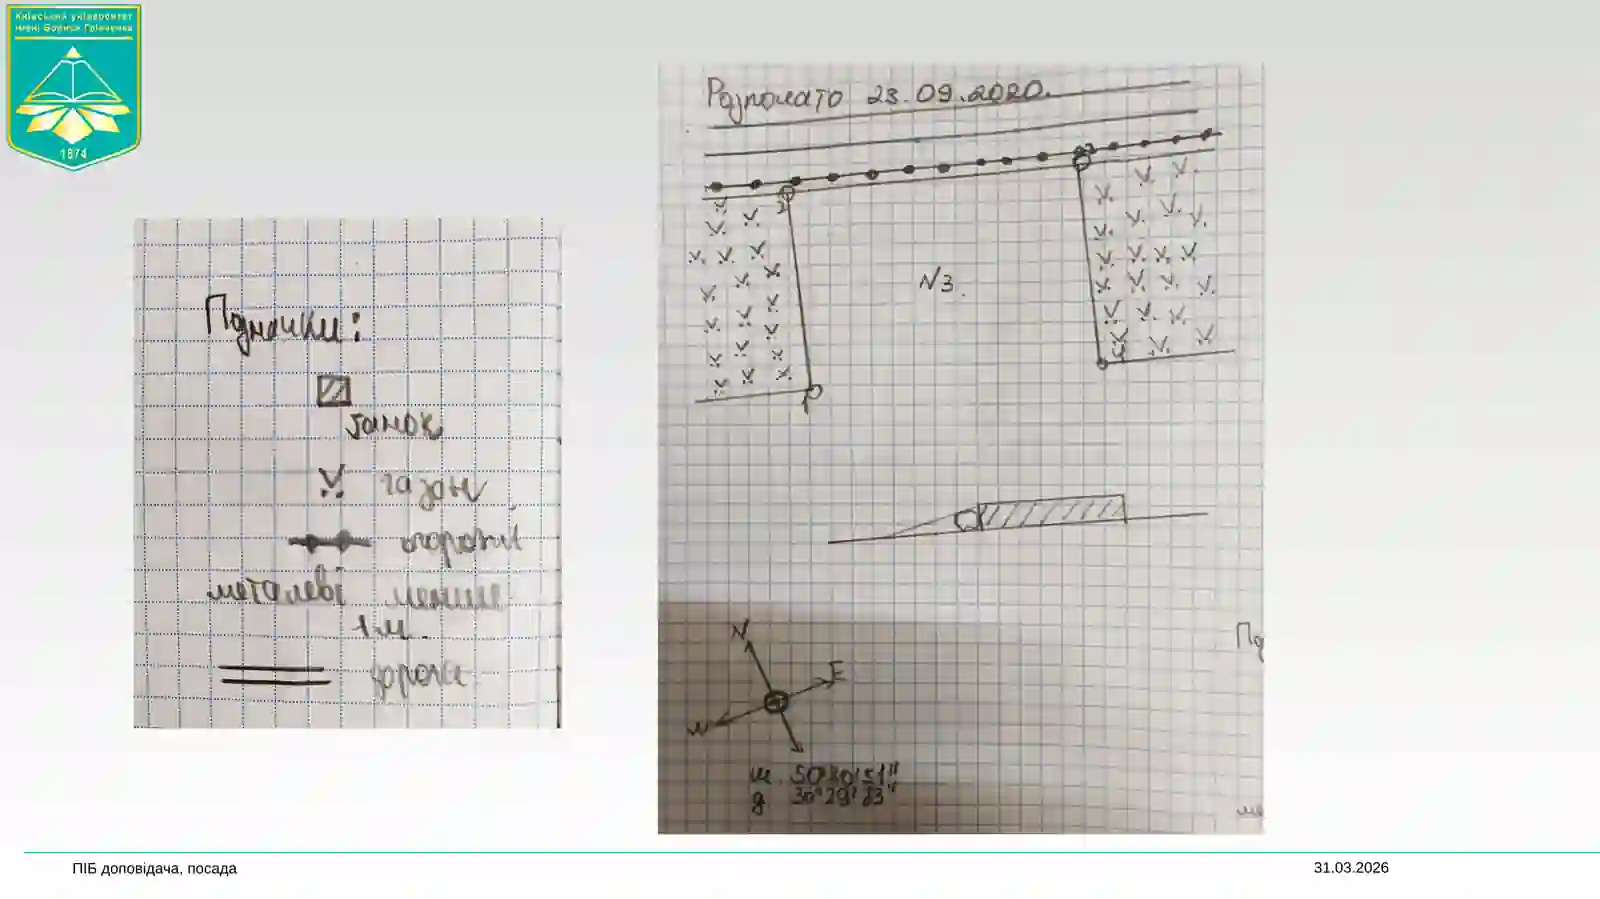 Київський університет
імені Бориса Грінченка
1874
Розпочато 23.09.2020.
2
3
N3.
1
4
Позначки:
ганок
газон
огорожі
металеві менше
1 м.
дорога
N
E
ш. 50°30'51"
д. 30°29'23"
ПІБ доповідача, посада
31.03.2026